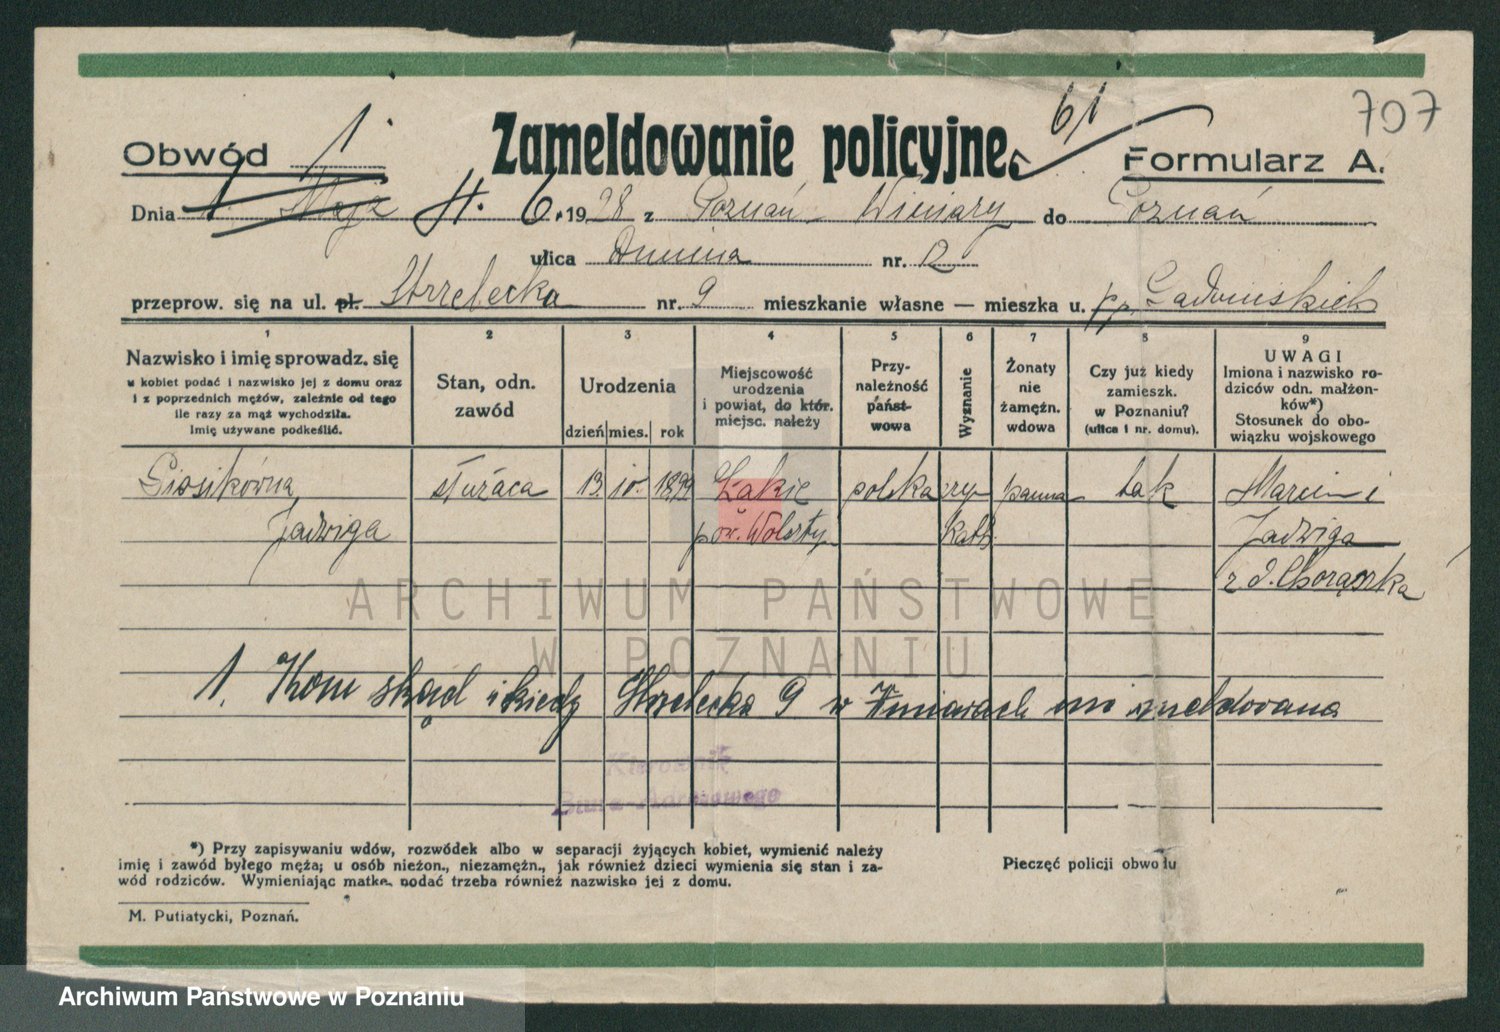 707
61
Obwód 1.
Zameldowanie policyjne.
Formularz A.
Dnia 1 Maja 4. 6. 1928 z Poznań - Winiary do Poznań
ulica Dunina nr. 12
przeprow. się na ul. pl. Strzelecka nr. 9 mieszkanie własne — mieszka u. pp.
1 2 3 4 5 6 7 8 9
Nazwisko i imię sprowadz. się
u kobiet podać i nazwisko jej z domu oraz
i z poprzednich mężów, zależnie od tego
ile razy za mąż wychodziła.
Imię używane podkeślić.
Stan, odn.
zawód
Urodzenia
dzień mies. rok
Miejscowość
urodzenia
i powiat, do któr.
miejsc. należy
Przy-
należność
państ-
wowa
Wyznanie
Żonaty
nie
żamężn.
wdowa
Czy już kiedy
zamieszk.
w Poznaniu?
(ulica i nr. domu).
UWAGI
Imiona i nazwisko ro-
dziców odn. małżon-
ków*)
Stosunek do obo-
wiązku wojskowego
służąca 13. 10. 1899 Łąkie polska rzy panna tak Marcin i
Jadwiga pow. Wolszty kath. Jadwiga
z d.
ARCHIWUM PAŃSTWOWE
W POZNANIU
1. Kom skąd i kiedy Strzelecka 9 w Winiarach nie meldowana
Kierownik
Biura Adresowego
*) Przy zapisywaniu wdów, rozwódek albo w separacji żyjących kobiet, wymienić należy
imię i zawód byłego męża; u osób nieżon., niezamężn., jak również dzieci wymienia się stan i za-
wód rodziców. Wymieniając matkę, podać trzeba również nazwisko jej z domu.
Pieczęć policji obwodu
M. Putiatycki, Poznań.
Archiwum Państwowe w Poznaniu